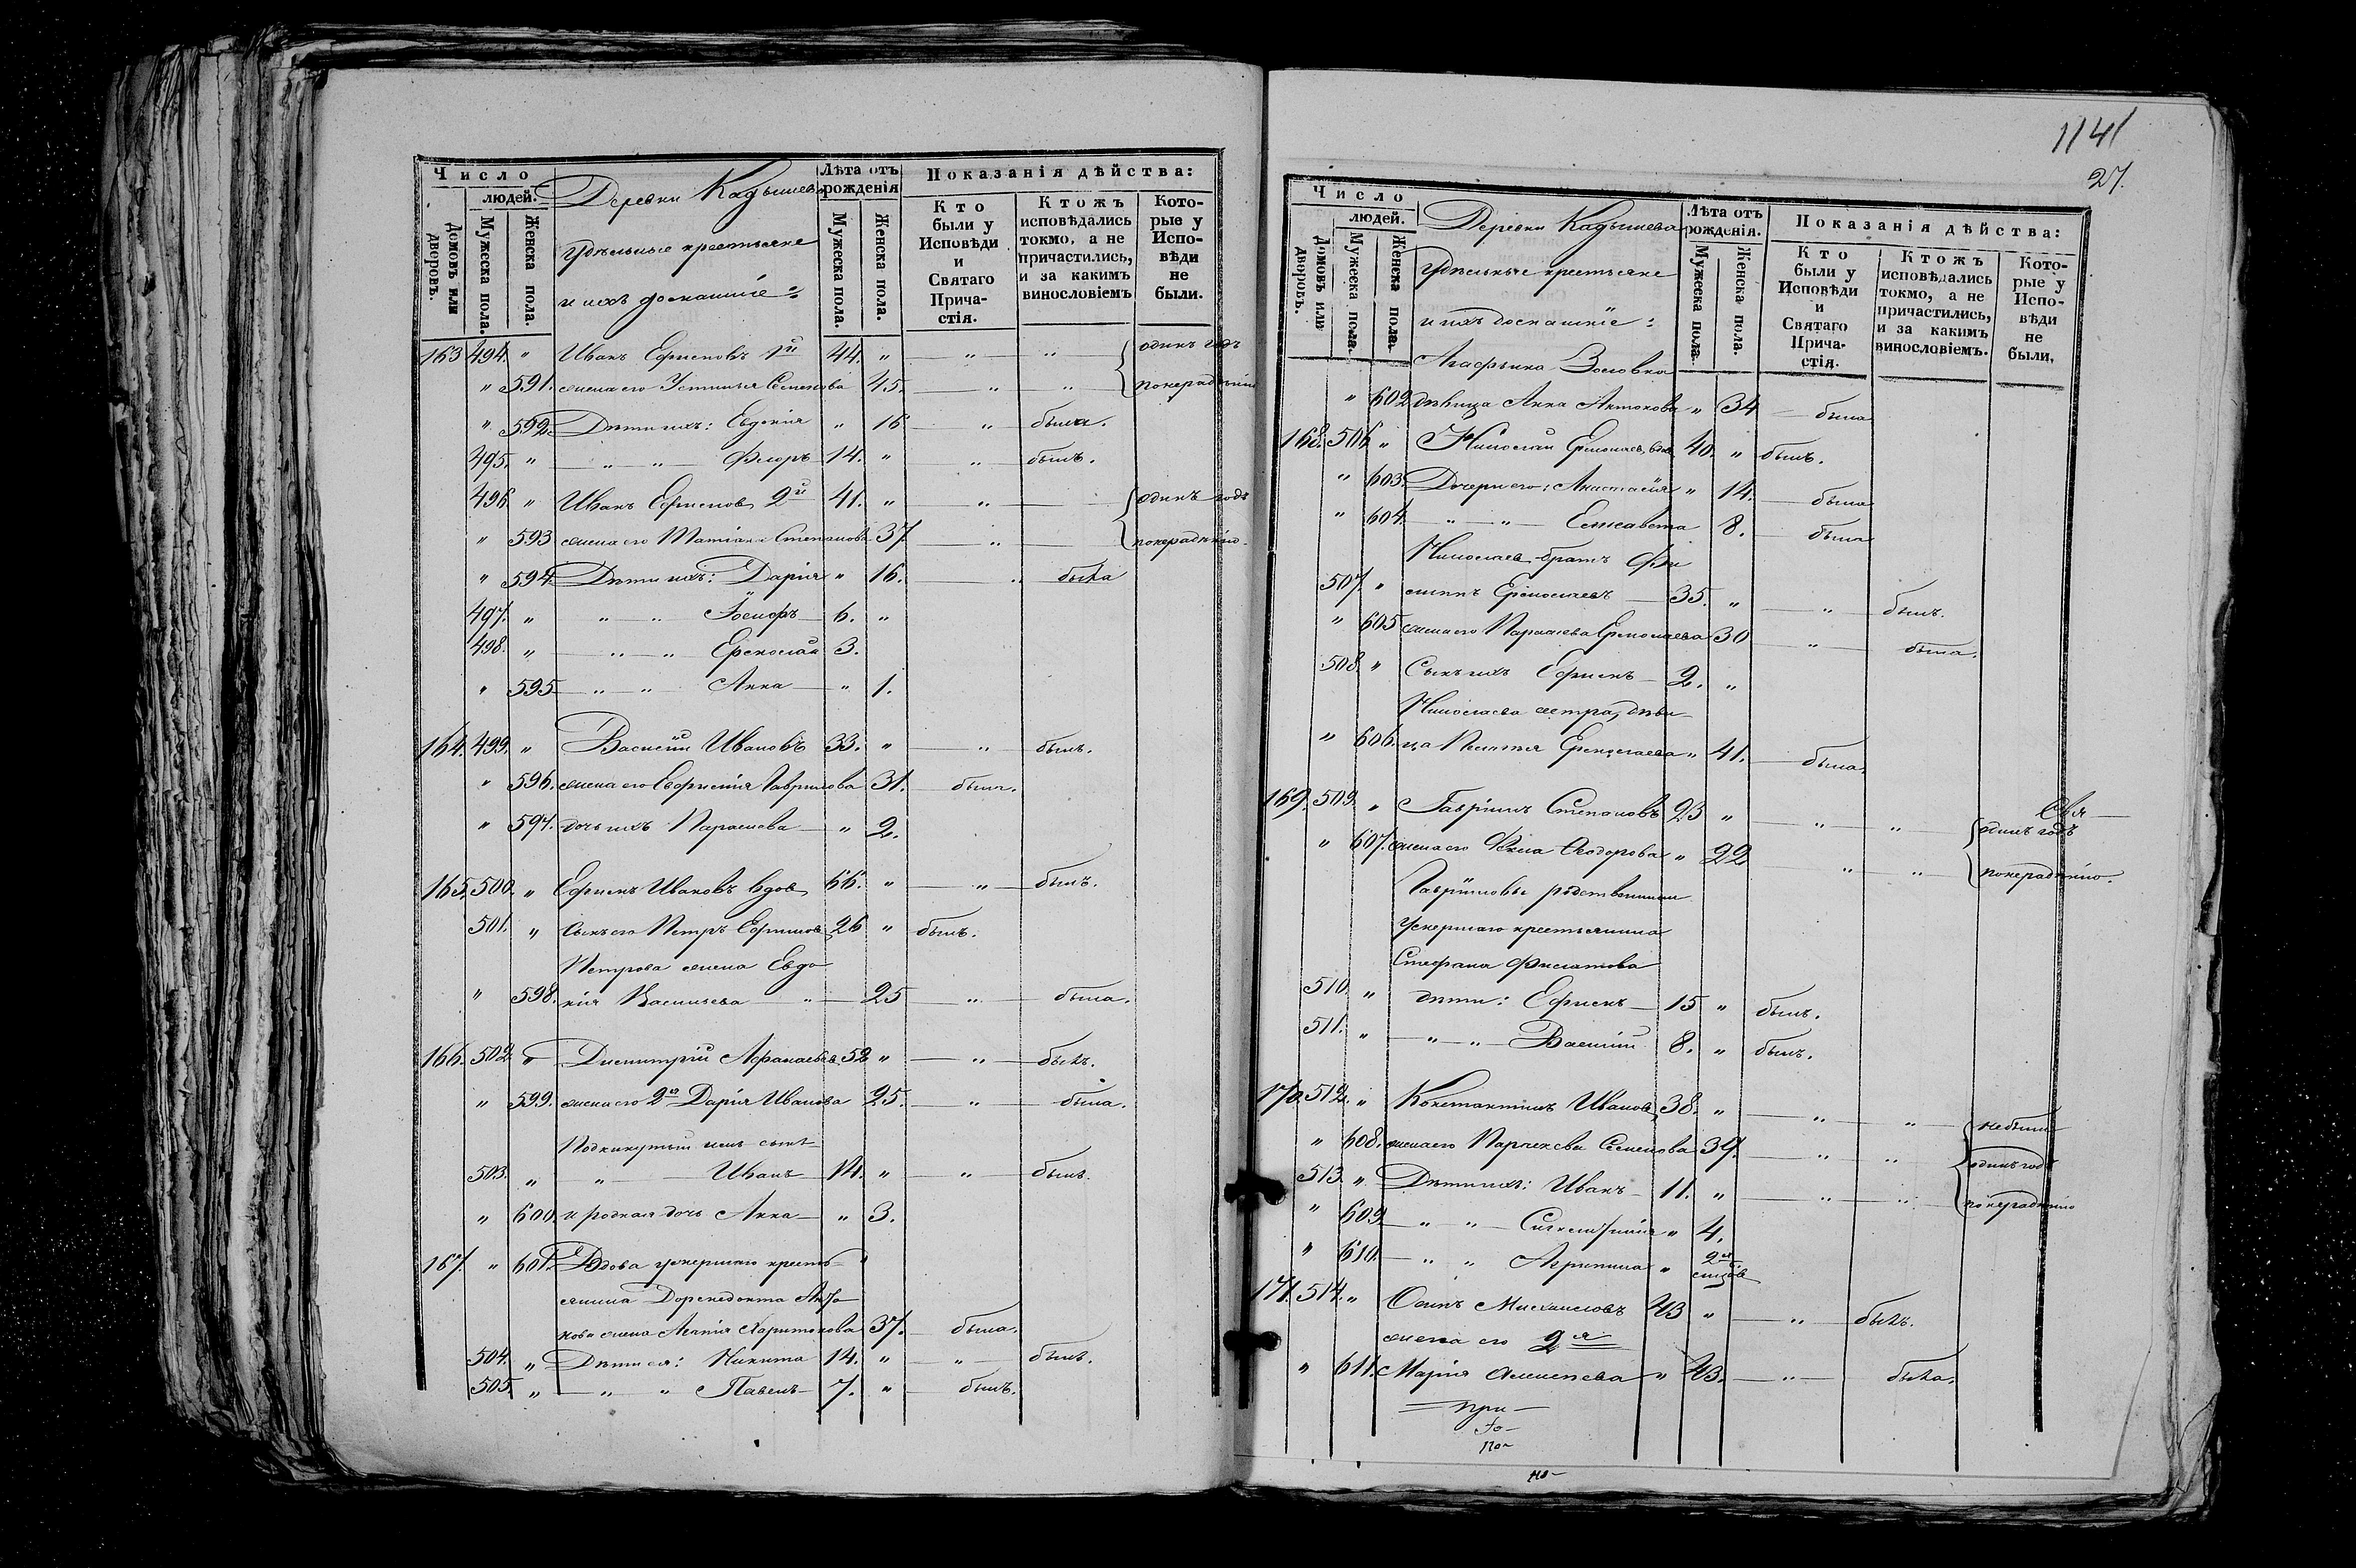 Число
людей.
Домовъ или дворовъ.
Мужеска пола.
Женска пола.
Деревни Кадышева
удѣльные крестьяне
и ихъ домашніе:
Лѣта отъ рожденія
Мужеска пола.
Женска пола.
Показанія дѣйства:
Кто были у Исповѣди и Святаго Причастія.
Ктожъ исповѣдались токмо, а не причастились, и за какимъ винословіемъ
Которые у Исповѣди не были.
163 494. " Иванъ Ефимовъ 1й 44. " " " одинъ годъ
" 591. жена его Устинья Семенова 45. " " понерадѣнію
" 592. Дѣти ихъ: Евдокія " 16 " была.
495. " " " Флоръ 14. " " былъ.
496. " Иванъ Ефимовъ 2й 41. " " одинъ годъ
" 593 жена его Татіана Степанова 37. " понерадѣнію.
" 594. Дѣти ихъ: Дарія " 16. " была
497. " " " 6. "
498. " " " Ермолай 3.
" 595 " " Анна " 1.
164. 499. " Василій Ивановъ 33. " " былъ.
" 596. жена его Евфимія Гаврилова 31. была.
" 597. дочь ихъ Параскева " 2.
165. 500. " Ефимъ Ивановъ вдов 66. " " былъ.
501. " Сынъ его Петръ Ефимов 26 " былъ.
Петрова жена Евдо
" 598. кія Васильева " 25 " была.
166. 502. " Димитрій Афанасьев 52 " " былъ.
" 599. жена его 2я Дарія Иванова 25. " была.
Подкинутый имъ сынъ
503. " " Иванъ 14. " " былъ.
" 600. и родная дочь Анна " 3.
167. " 601. Вдова умершаго кресть-
янина Дормедонта Анто
нова жена Агапія Харитонова 37. была.
504. " Дѣти ея: Никита 14. " " былъ.
505. " " " Павелъ 7. " былъ.
1141
27.
Число
людей.
Домовъ или дворовъ.
Мужеска пола.
Женска пола.
Деревни Кадышева
удѣльные крестьяне
и ихъ домашніе:
Лѣта отъ рожденія.
Мужеска пола.
Женска пола.
Показанія дѣйства:
Кто были у Исповѣди и Святаго Причастія.
Ктожъ исповѣдались токмо, а не причастились, и за какимъ винословіемъ.
Которые у Исповѣди не были.
Агафьина Золовка
" 602 дѣвица Анна Антонова " 34 была
168. 506 " Николай Ермолаев, вдов 40. " былъ.
" 603. Дочери его: Анастасія " 14. была
" 604. " " Елисавета 8. была
Николаев братъ Фи
507. " липпъ Ермолаевъ 35. " " былъ.
" 605 жена его Параскева Ермолаева 30 " была.
508. " Сынъ ихъ Ефимъ 2. "
Николаева сестра, дѣви
" 606. ца Ермолаева " 41. была.
169. 509. " Гавріилъ Степановъ 23 " " " одинъ годъ
" 607. жена его Ѳекла Ѳеодорова " 22 " " понерадѣнію.
Гавріиловы родственники
умершаго крестьянина
Стефана Филатова
510. " дѣти: Ефимъ 15 " былъ.
511. " " " Василій 8. " былъ.
170. 512. " Константинъ Иванов 38. " " " небыли
" 608. жена его Параскева Семенова 39. " " одинъ годъ
513. " Дѣти ихъ: Иванъ 11. " " " понерадѣнію
" 609 " " " 4.
" 610. " " Агрипина " 2хъ
171. 514. " Осипъ Михаиловъ 43 " " былъ.
жена его 2я
" 611. Марія Алексѣева " 43. " была.
при